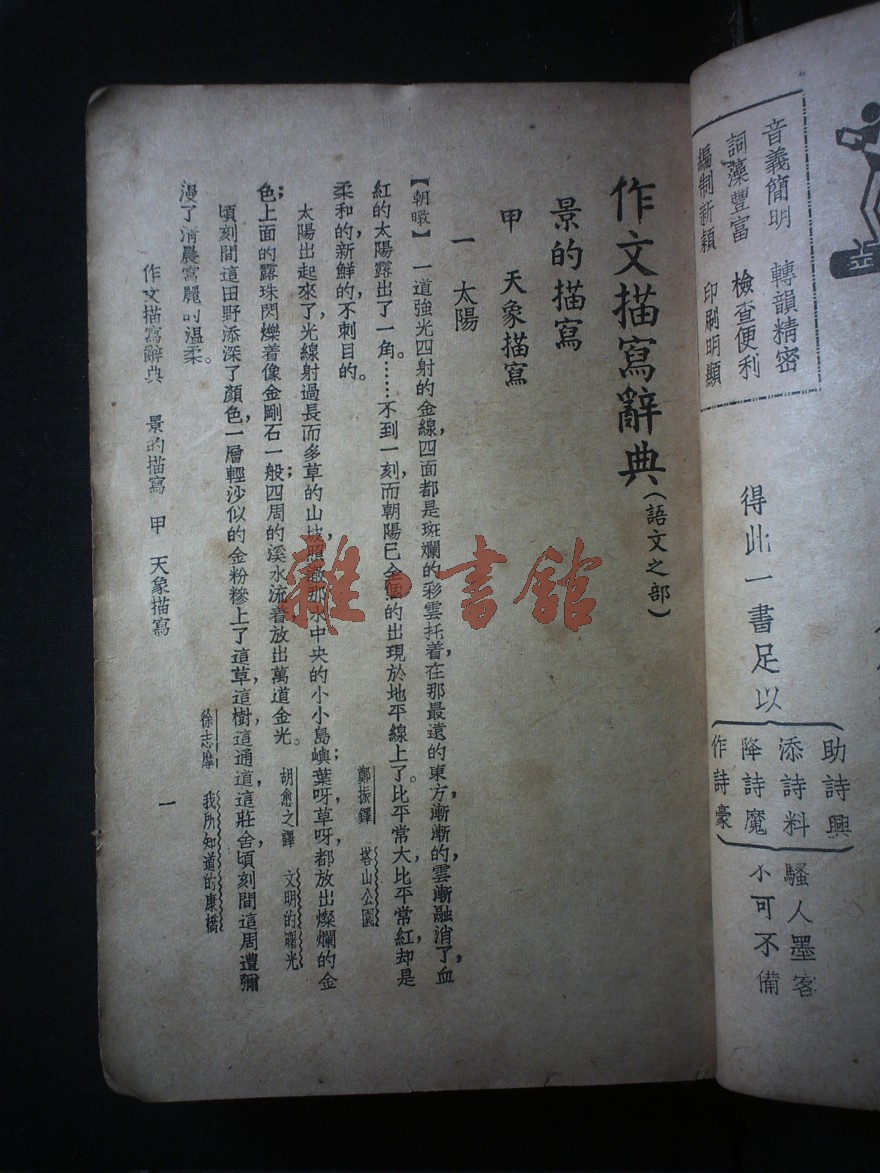 音義簡明 轉韻精密
詞藻豐富 檢查便利
編制新穎 印刷明顯
得此一書足以
助詩興
添詩料
降詩魔
作詩豪
騷人墨客
不可不備
作文描寫辭典(語文之部)
景的描寫
甲 天象描寫
一 太陽
【朝暾】 一道強光四射的金線,四面都是斑斕的彩雲托着在那最遠的東方,漸漸的雲漸融消了,血
紅的太陽露出了一角。……不到一刻,而朝陽已全個的出現於地平線上了。比平常大,比平常紅,却是
柔和的,新鮮的,不刺目的。
鄭振鐸 塔山公園
太陽出起來了,光線射過長而多草的山坡,照澈那水中央的小小島嶼;葉呀,草呀,都放出燦爛的金
色;上面的露珠閃爍着像金剛石一般;四周的溪水流着,放出萬道金光。
胡愈之譯 文明的曙光
頃刻間這田野添深了顏色,一層輕沙似的金粉糝上了這草,這樹,這通道,這莊舍,頃刻間這周遭瀰
漫了清晨富麗的溫柔。
徐志摩 我所知道的康橋
作文描寫辭典 景的描寫 甲 天象描寫
一
雜·書館